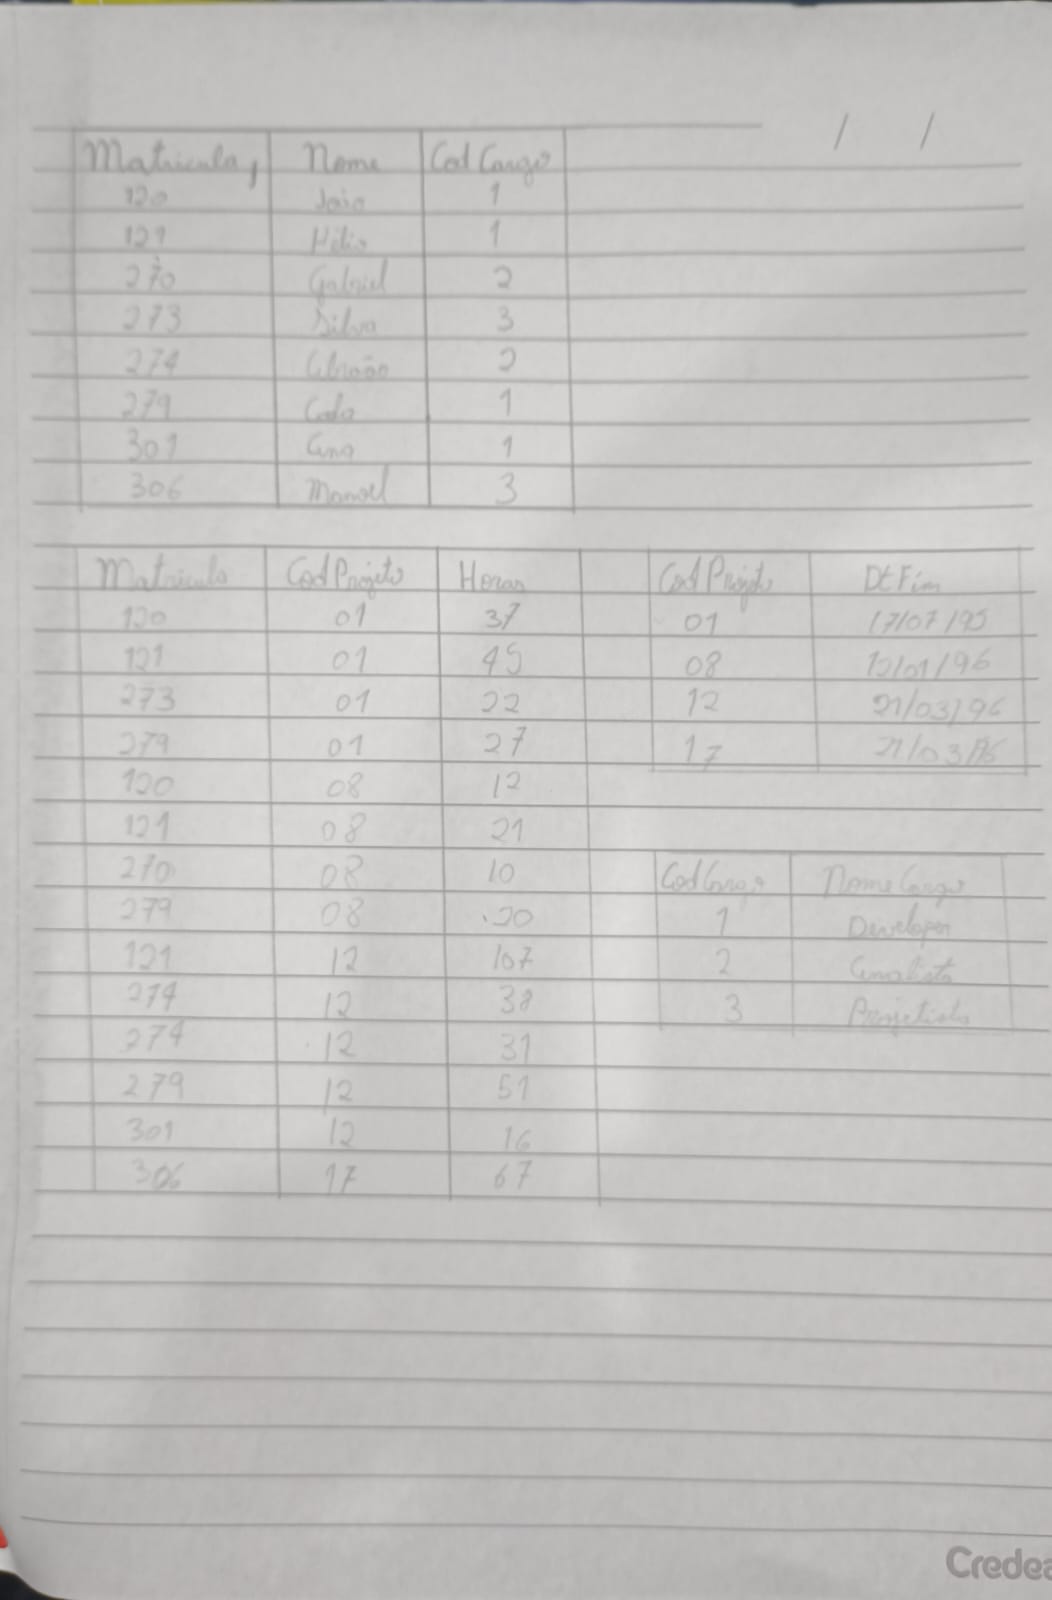 / /
Matricula, Nome Cod Cargo
120 João 1
121 Hélio 1
270 Gabriel 2
273 Silva 3
274 Abraão 2
279 Carla 1
301 Ana 1
306 Manoel 3
Matricula Cod Projeto Horas
120 01 37
121 01 45
273 01 22
279 01 27
120 08 12
121 08 21
270 08 10
279 08 20
121 12 107
274 12 38
274 12 31
279 12 51
301 12 16
306 17 67
Cod Projeto Dt Fim
01 17/07/95
08 12/01/96
12 21/03/96
17 21/03/96
Cod Cargo Nome Cargo
1 Developer
2 Analista
3 Projetista
Credea